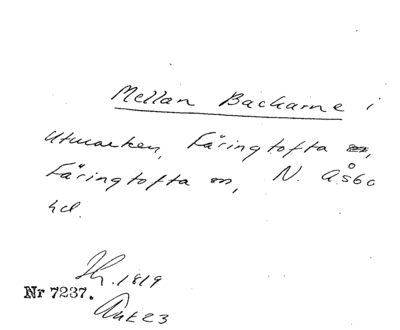 Mellan Backarne i
Utmarken, Färingtofta sn,
Färingtofta sn, N. Åsbo
hd.
1819
Nr 7237.
Akt 23